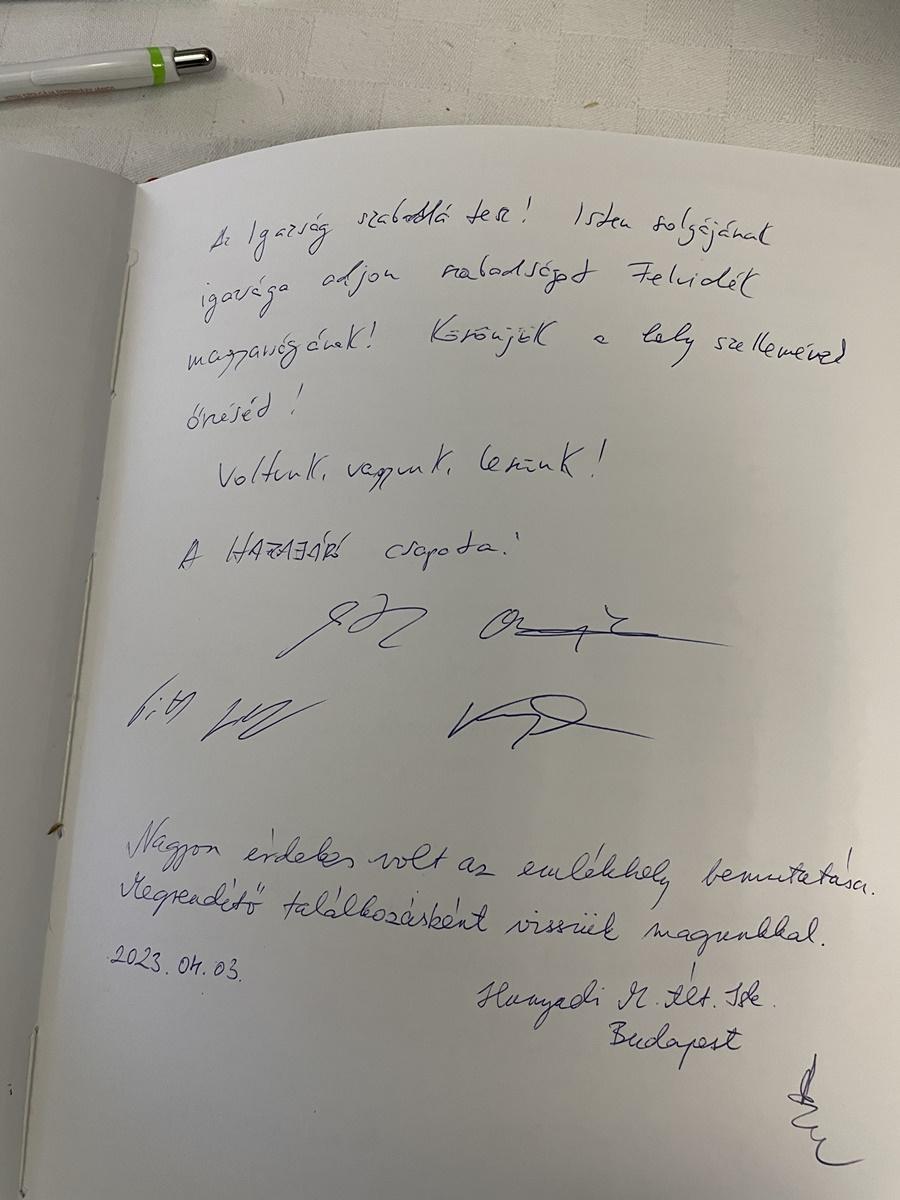 Az Igazság szabaddá tesz! Isten szolgájának
igazsága adjon szabadságot Felvidék
magyarságának! Köszönjük a hely szellemének
őrzését!
Voltunk, vagyunk, leszünk!
A HAZAJÁRÓ csapata!
Nagyon érdekes volt az emlékhely bemutatása.
Megrendítő találkozásként visszük magunkkal.
2023. 04. 03.
Hunyadi M. Ált. Isk.
Budapest